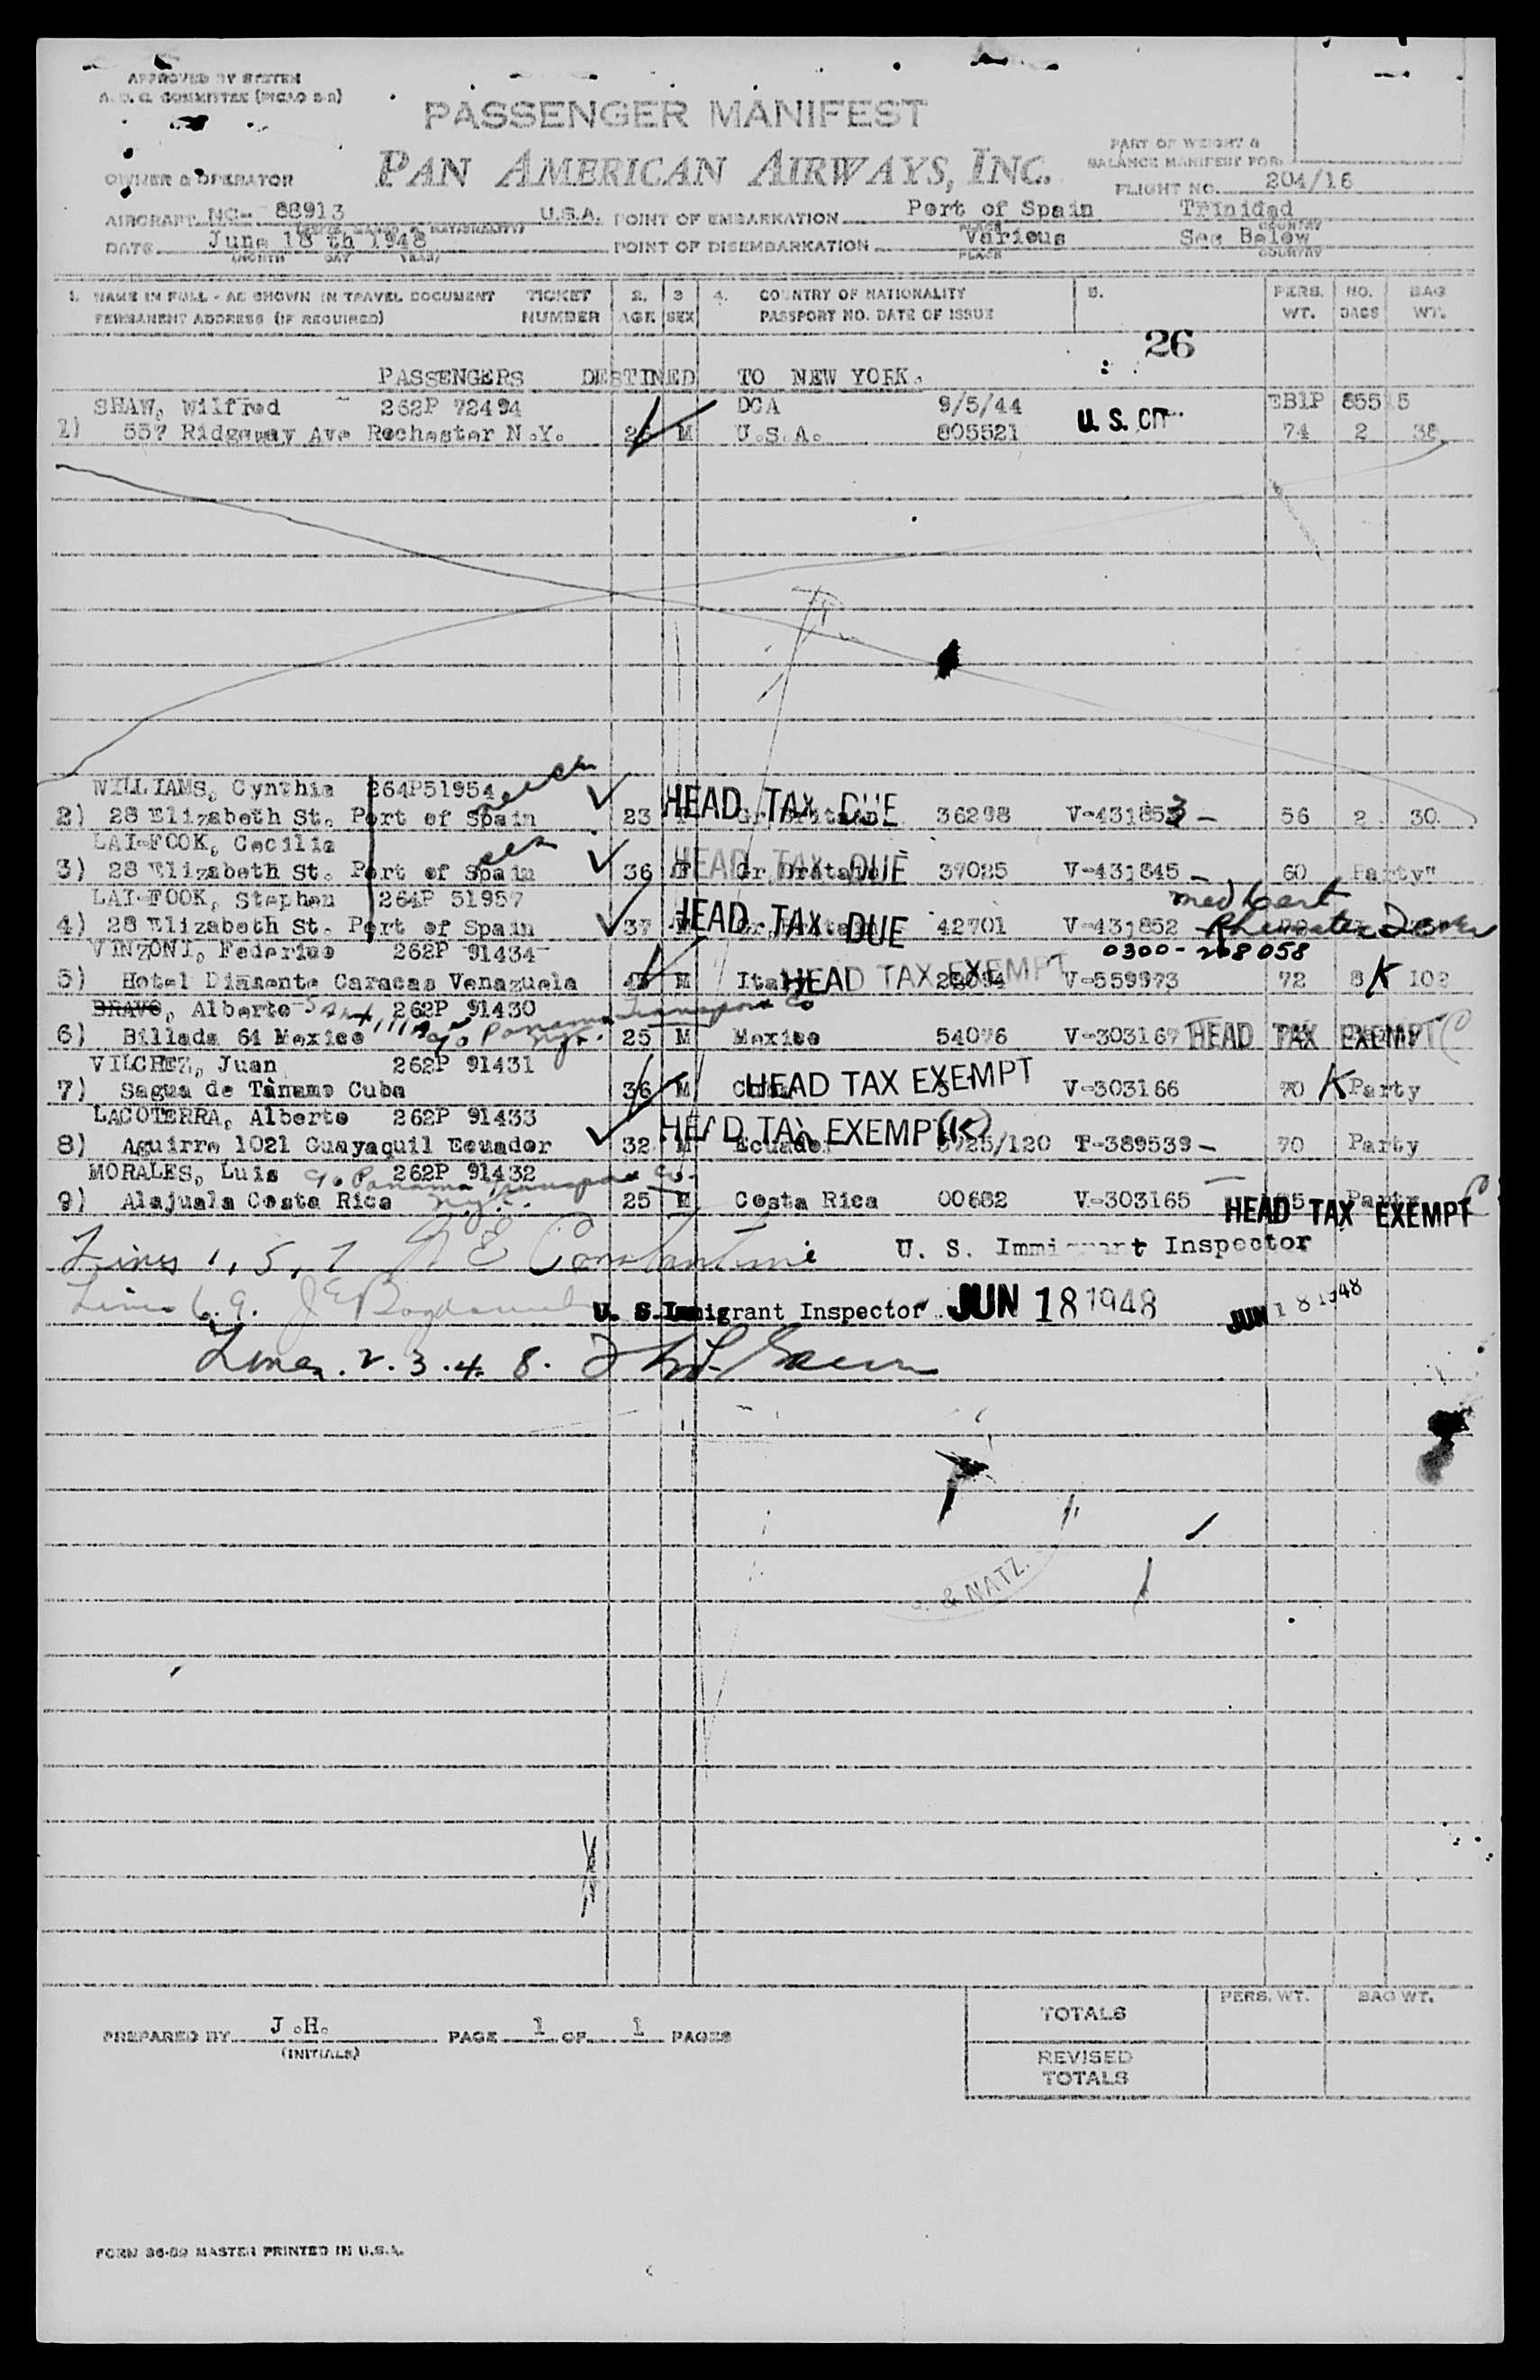 APPROVED BY SYSTEM
A. O. C. COMMITTEE (PICAO 2-2)
PASSENGER MANIFEST
PAN AMERICAN AIRWAYS, INC.
PART OF WEIGHT &
BALANCE MANIFEST FOR:
OWNER & OPERATOR
FLIGHT NO. 204/16
AIRCRAFT NC- 88913 U.S.A. POINT OF EMBARKATION Port of Spain Trinidad
PLACE COUNTRY
DATE June 18 th 1948 POINT OF DISEMBARKATION Various See Below
(MONTH DAY YEAR) PLACE COUNTRY
1. NAME IN FULL - AS SHOWN IN TRAVEL DOCUMENT TICKET 2. 3 4. COUNTRY OF NATIONALITY 5. PERS. NO. BAG
PERMANENT ADDRESS (IF REQUIRED) NUMBER AGE SEX PASSPORT NO. DATE OF ISSUE WT. BAGS WT.
26
PASSENGERS DESTINED TO NEW YORK.
SHAW, Wilfred 262P 72494 DCA 9/5/44 EB1P 855 5
1) 557 Ridgeway Ave Rochester N.Y. M U.S.A. 805521 U. S. CIT 74 2 38
WILLIAMS, Cynthia 264P51954
2) 28 Elizabeth St. Port of Spain 23 HEAD TAX DUE Gr. Britain 36298 V-431853 - 56 2 30
LAI-FOOK, Cecilia
3) 28 Elizabeth St. Port of Spain 36 F HEAD TAX DUE Gr. Britain 37025 V-431845 - 60 Party"
LAI-FOOK, Stephen 264P 51957 med cert
4) 28 Elizabeth St. Port of Spain 37 HEAD TAX DUE 42701 V-431852
VINZONI, Federico 262P 91434 0300-268058
5) Hotel Diamante Caracas Venezuela M Italy HEAD TAX EXEMPT V-559973 72 8 K 102
BRAVO, Alberto 262P 91430 c/o Panama Transport Co
6) Billada 64 Mexico N.Y. 25 M Mexico 54076 V-303167 HEAD TAX EXEMPT
VILCHEZ, Juan 262P 91431
7) Sagua de Tànamo Cuba 36 M HEAD TAX EXEMPT V-303166 70 K Party
LACOTERRA, Alberto 262P 91433
8) Aguirre 1021 Guayaquil Ecuador 32 M HEAD TAX EXEMPT (K) Ecuador 5725/120 T-389539 - 70 Party
MORALES, Luis 262P 91432 c/o Panama Transport Co.
9) Alajuala Costa Rica N.Y.C. 25 M Costa Rica 00682 V-303165 HEAD TAX EXEMPT Party
Lines 1, 5, 7 N E Constantine U. S. Immigrant Inspector
Lines 6. 9. U. S. Immigrant Inspector JUN 18 1948 JUN 18 1948
Lines. 2. 3. 4. 8.
& NATZ.
PREPARED BY J.H. PAGE 1 OF 1 PAGES
(INITIALS)
PERS. WT. BAG WT.
TOTALS
REVISED
TOTALS
FORM 36-59 MASTER PRINTED IN U.S.A.